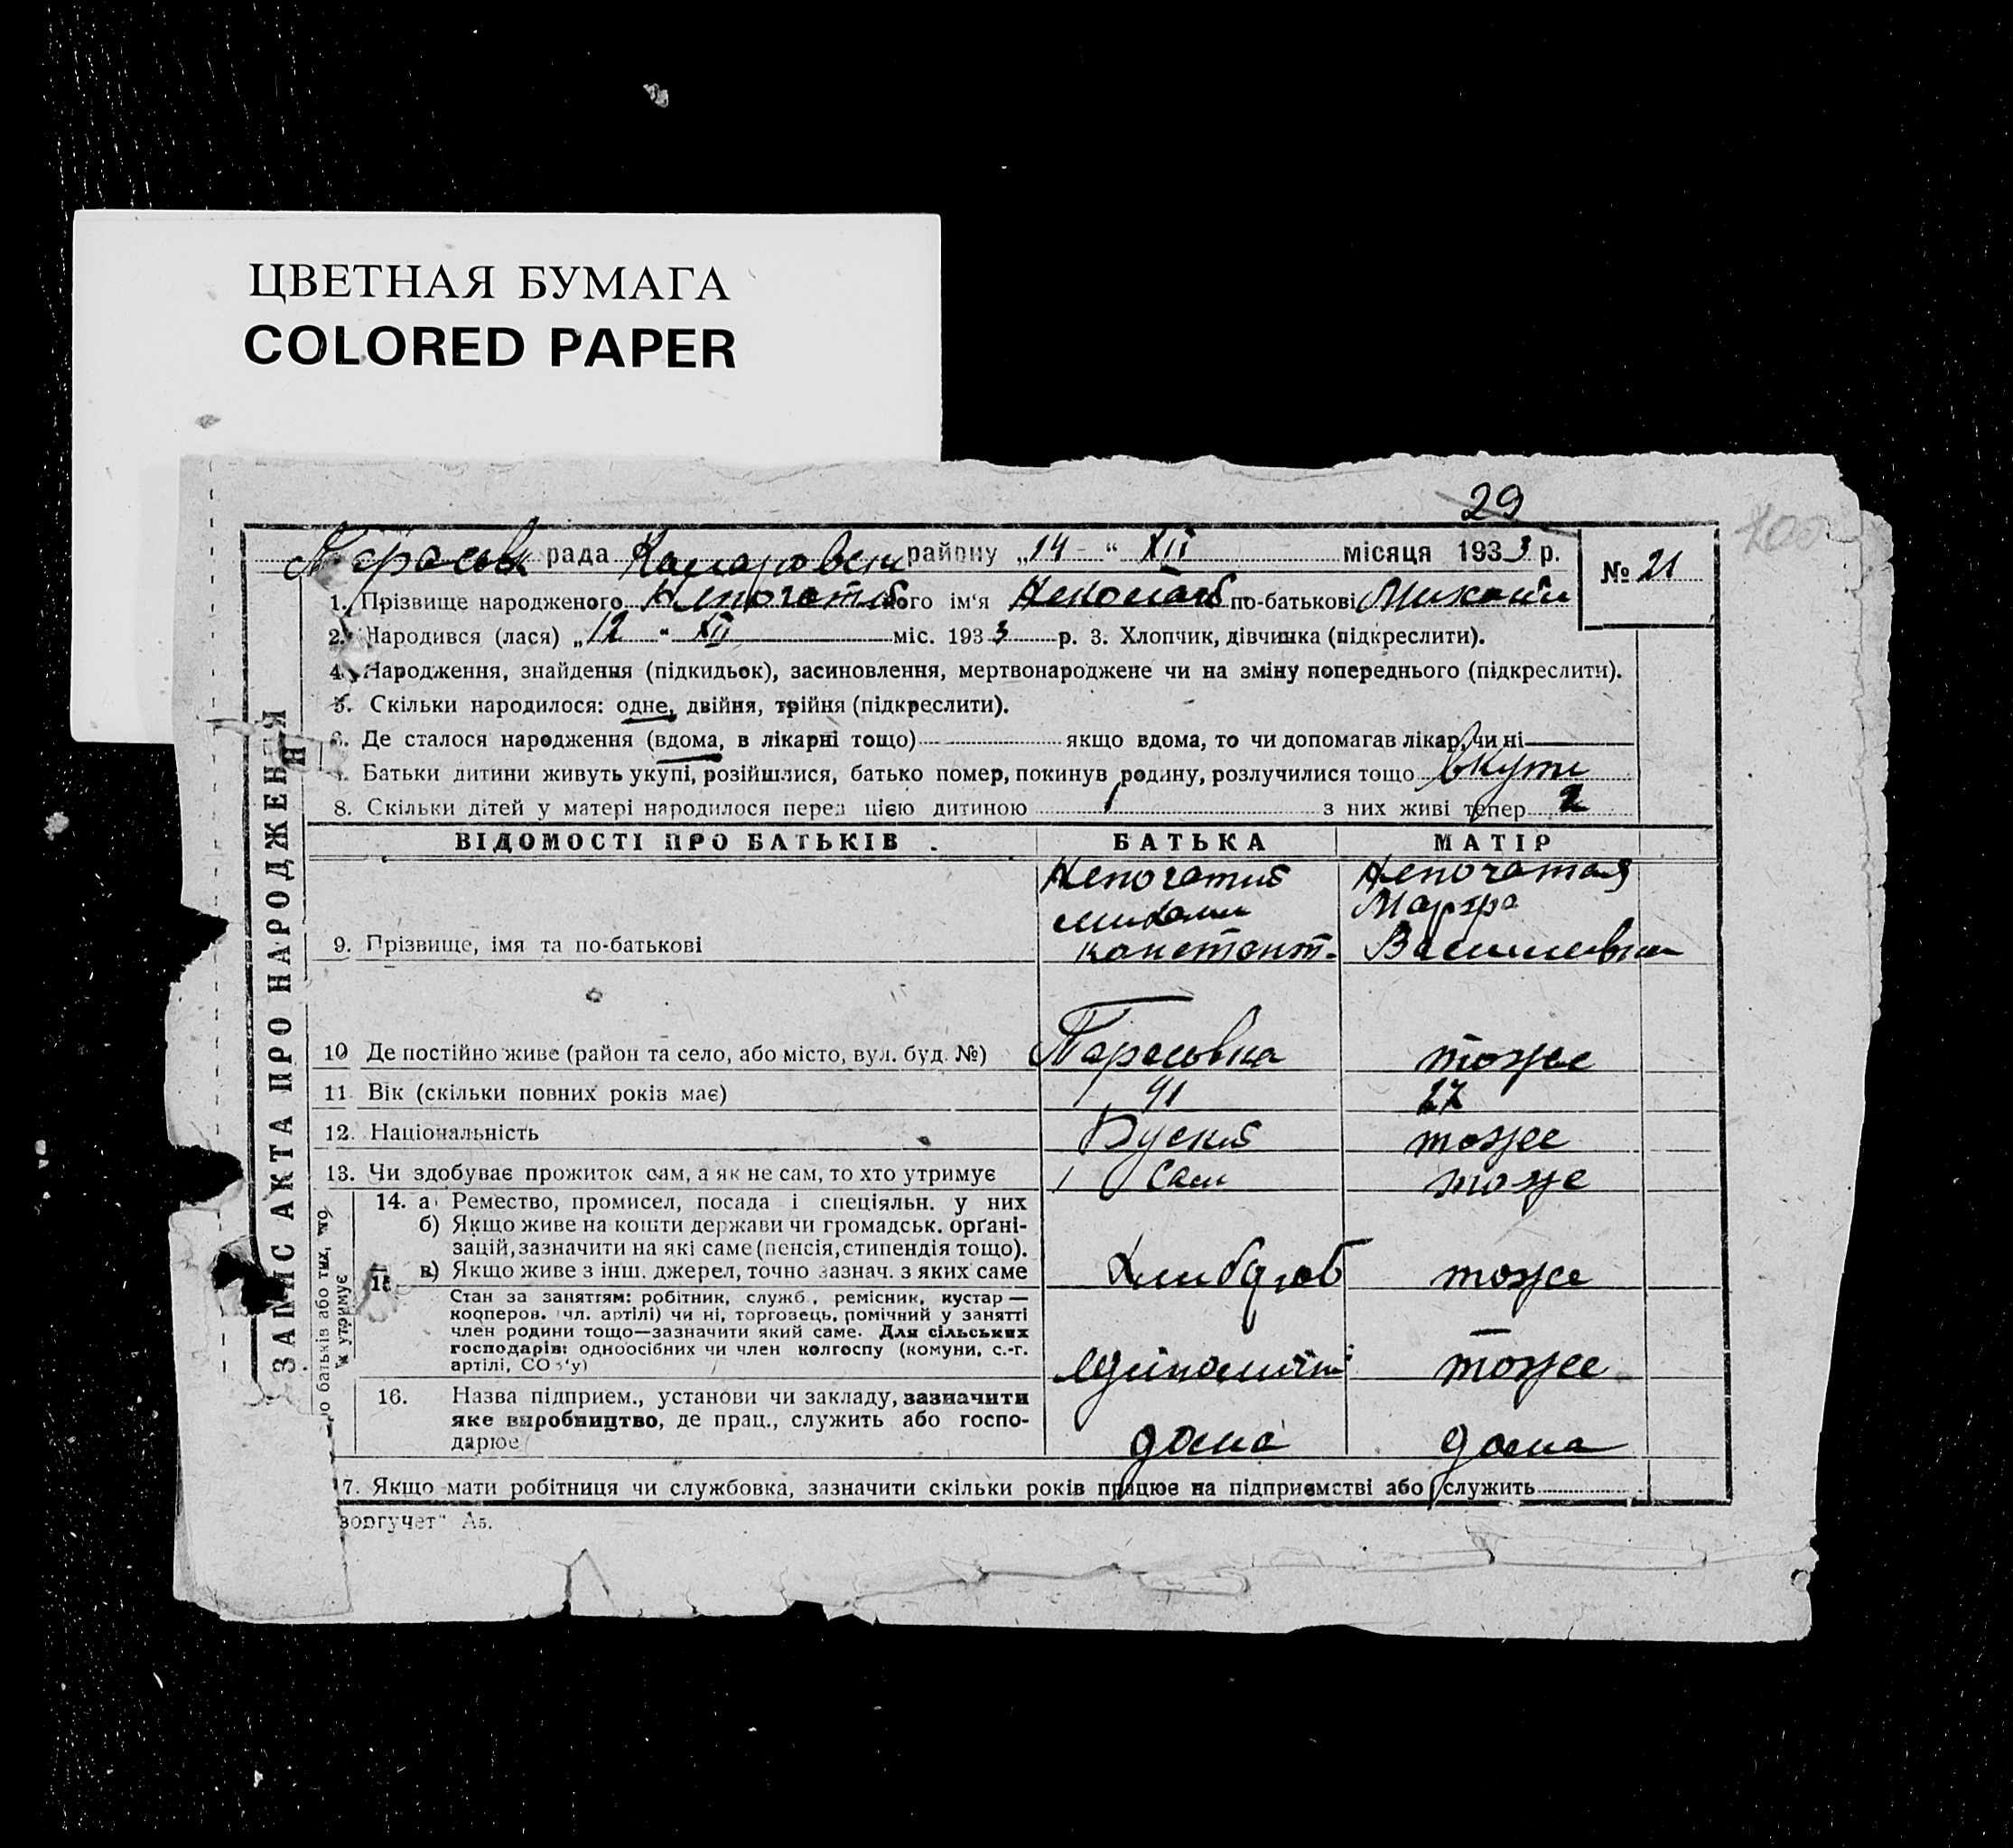 ЦВЕТНАЯ БУМАГА
COLORED PAPER
29
700
рада району „14 “ XII місяця 1933 р.
№ 21
1. Прізвище народженого його ім‘я по-батькові
2. Народився (лася) „12 “ XII міс. 1933 р. 3. Хлопчик, дівчинка (підкреслити).
4. Народження, знайдення (підкидьок), засиновлення, мертвонароджене чи на зміну попереднього (підкреслити).
5. Скільки народилося: одне, двійня, трійня (підкреслити).
6. Де сталося народження (вдома, в лікарні тощо) якщо вдома, то чи допомагав лікар, чи ні
7. Батьки дитини живуть укупі, розійшлися, батько помер, покинув родину, розлучилися тощо вкупи
8. Скільки дітей у матері народилося перед цією дитиною 1 з них живі тепер 2
ВІДОМОСТІ ПРО БАТЬКІВ БАТЬКА МАТІР
Непочатий Непочатая
Михаил
9. Прізвище, імя та по-батькові Констант. Васильевна
10 Де постійно живе (район та село, або місто, вул. буд. №) Тарасовка тоже
11. Вік (скільки повних років має) 41 27
12. Національність Руский тоже
13. Чи здобуває прожиток сам, а як не сам, то хто утримує Сам тоже
14. а) Ремество, промисел, посада і спеціяльн. у них
б) Якщо живе на кошти держави чи громадськ. орґані-
зацій, зазначити на які саме (пенсія, стипендія тощо).
в) Якщо живе з інш. джерел, точно зазнач. з яких саме Хлибороб тоже
15
Стан за заняттям: робітник, служб., ремісник, кустар —
кооперов. чл. артілі) чи ні, торговець, помічний у занятті
член родини тощо—зазначити який саме. Для сільських
господарів: одноосібних чи член колгоспу (комуни, с.-г.
артілі, СОЗ‘у) тоже
16. Назва підприєм., установи чи закладу, зазначити
яке виробництво, де прац., служить або госпо-
дарює дома дома
7. Якщо мати робітниця чи службовка, зазначити скільки років працює на підприємстві або служить
зоргучет“ А5.
ЗАПИС АКТА ПРО НАРОДЖЕННЯ
о батьків або тих, що
їх утримує